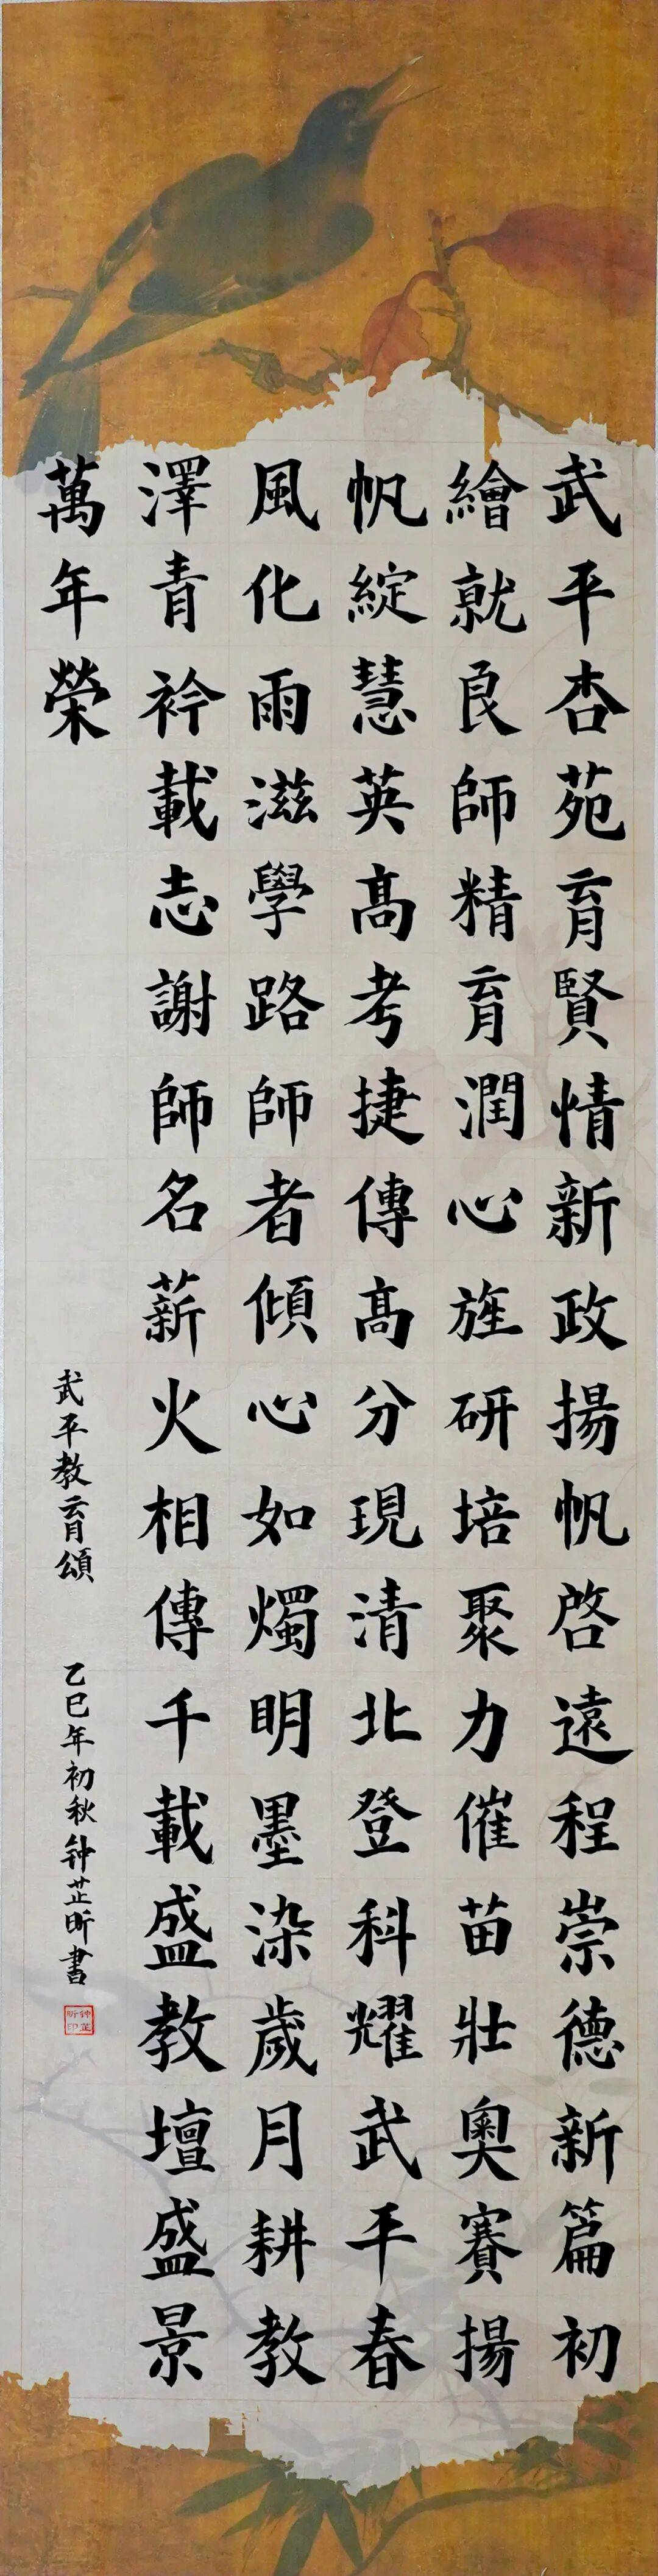 武平杏苑育賢情新政揚帆啓遠程崇德新篇初
繪就良師精育潤心旌研培聚力催苗壯奧賽揚
帆綻慧英高考捷傳高分現清北登科耀武平春
風化雨滋學路師者傾心如燭明墨染歲月耕教
澤青衿載志謝師名薪火相傳千載盛教壇盛景
萬年榮
武平教育頌
乙巳年初秋钟芷昕書
钟芷昕印